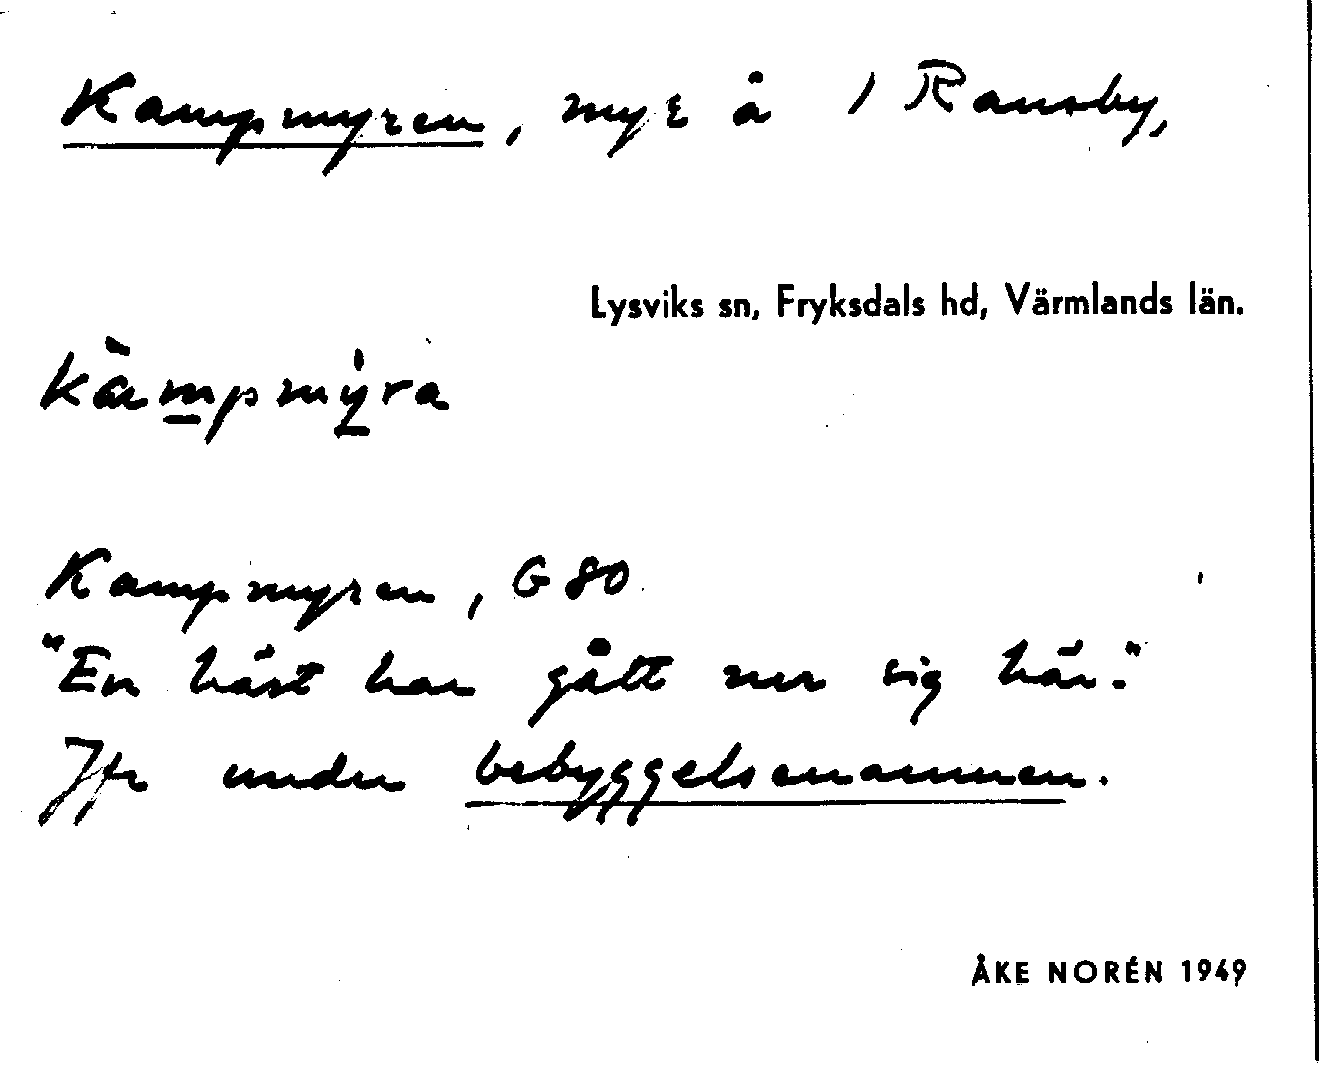 Kampmyren, myr å / Ransby,
Lysviks sn, Fryksdals hd, Värmlands län.
kàmpmỳra
Kampmyren, G 80
"En häst har gått ner sig här."
Jfr under bebyggelsenamnen.
ÅKE NORÉN 1949